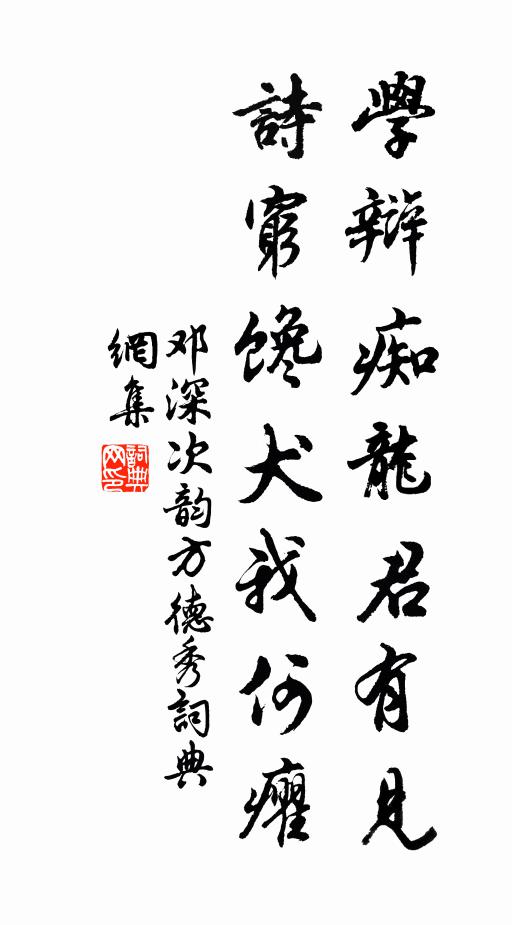 學辯痴龍君有見
詩窮馋犬我何癯
邓深次韵方德秀詞典
網集
詞典网印